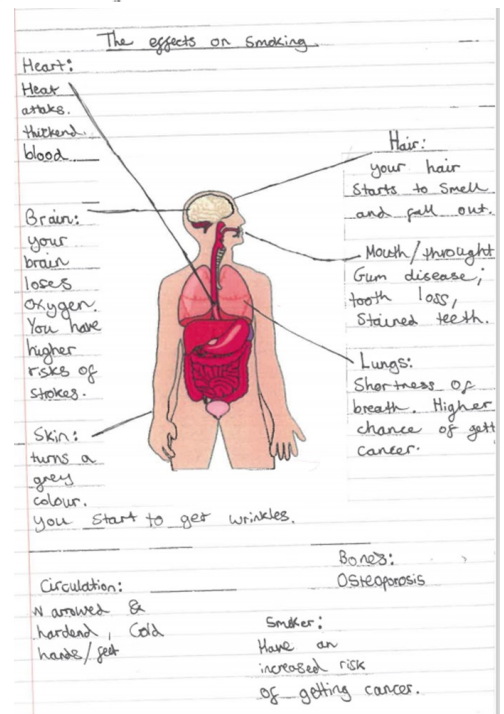 The effects on Smoking.
Heart:
Heat
attaks.
thickend
blood
Brain:
your
brain
loses
oxygen.
You have
higher
risks of
strokes.
Skin:
turns a
grey
colour.
you start to get wrinkles.
Hair:
your hair
Starts to smell
and fall out.
Mouth/throught
Gum disease,
tooth loss,
Stained teeth.
Lungs:
Shortness of
breath. Higher
chance of gett
cancer.
Bones:
Osteoporosis
Circulation:
Narrowed &
hardend, Cold
hands/feet
Smoker:
Have an
increased risk
of getting cancer.